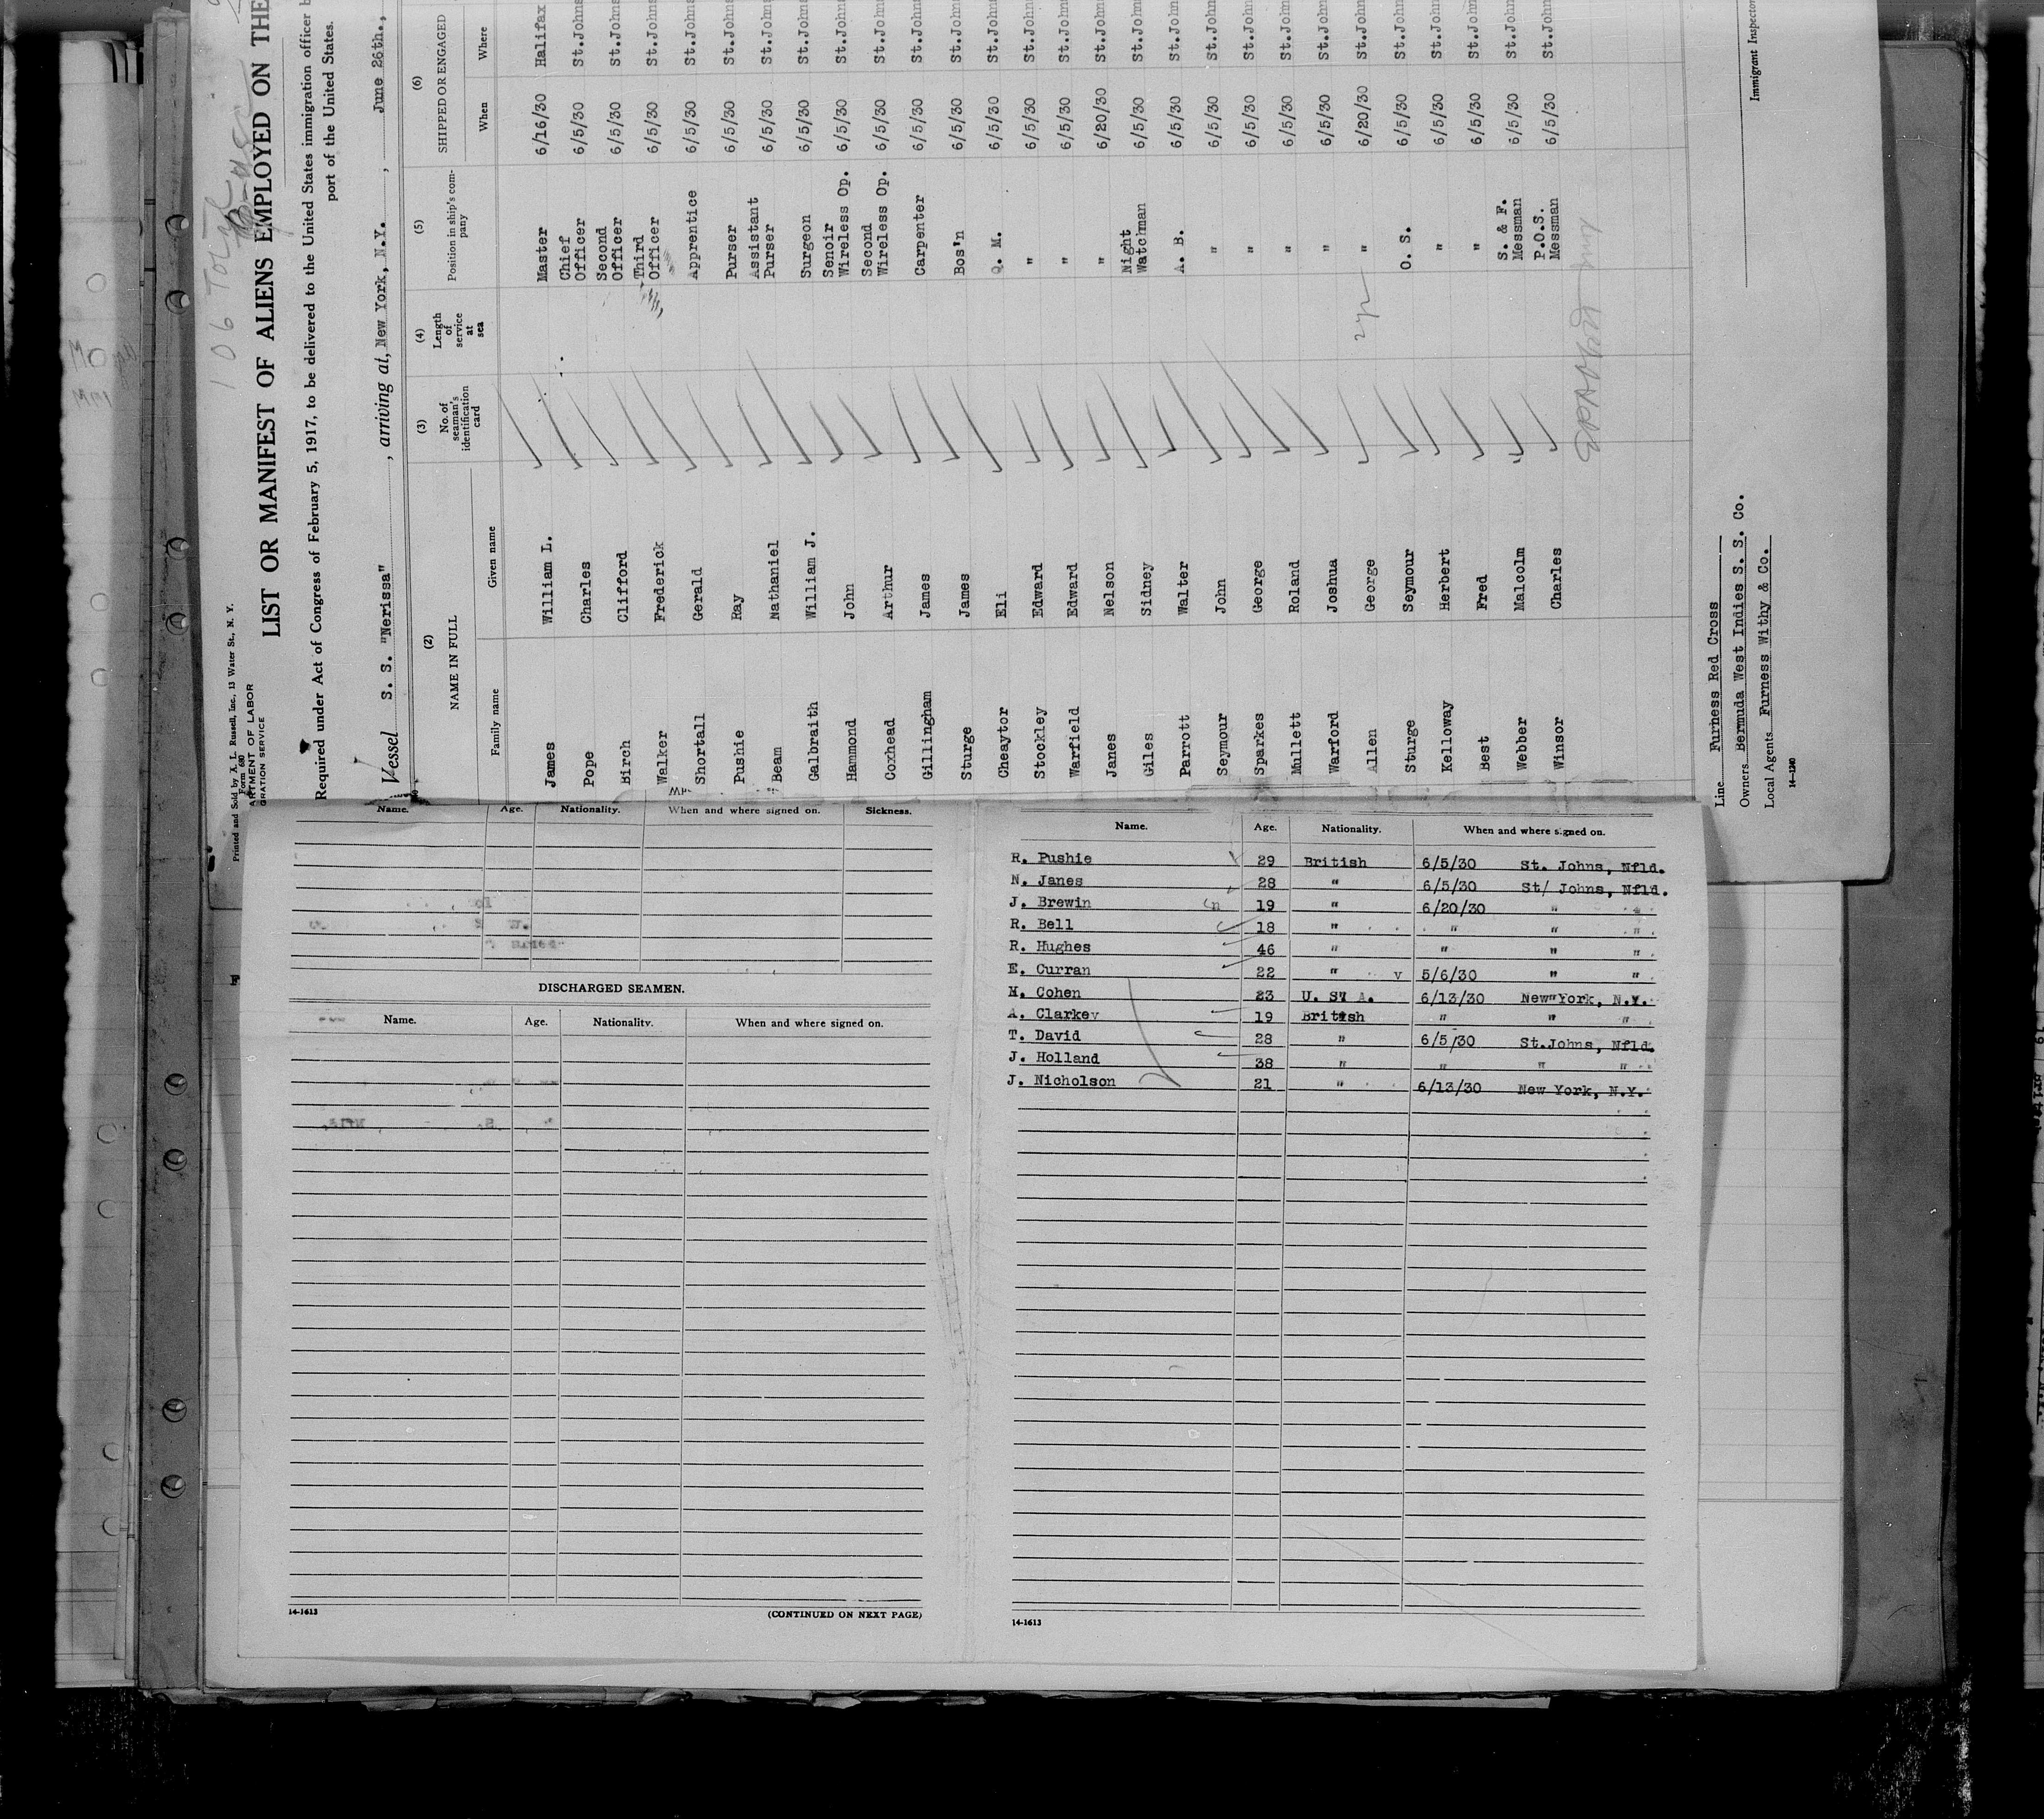 106 Total
Printed and Sold by A. L. Russell, Inc., 13 Water St., N. Y.
Form 680
ARTMENT OF LABOR
GRATION SERVICE
LIST OR MANIFEST OF ALIENS EMPLOYED ON THE
Required under Act of Congress of February 5, 1917, to be delivered to the United States immigration officer b
port of the United States.
Vessel S. S. "Nerissa" , arriving at, New York, N.Y. , June 26th.,
(2) (3) (4) (5) (6)
NAME IN FULL No. of seaman's identification card Length of service at sea Position in ship's company SHIPPED OR ENGAGED
Family name Given name When Where
James William L. Master 6/16/30 Halifax
Pope Charles Chief Officer 6/5/30 St.Johns
Birch Clifford Second Officer 6/5/30 St.Johns
Walker Frederick Third Officer 6/5/30 St.Johns
Shortall Gerald Apprentice 6/5/30 St.Johns
Pushie Ray Purser 6/5/30 St.Johns
Beam Nathaniel Assistant Purser 6/5/30 St.Johns
Galbraith William J. Surgeon 6/5/30 St.Johns
Hammond John Senoir Wireless Op. 6/5/30 St.Johns
Coxhead Arthur Second Wireless Op. 6/5/30 St.Johns
Gillingham James Carpenter 6/5/30 St.Johns
Sturge James Bos'n 6/5/30 St.Johns
Cheaytor Eli Q. M. 6/5/30 St.Johns
Stockley Edward " 6/5/30 St.John
Warfield Edward " 6/5/30 St.John
Janes Nelson " 6/20/30 St.John
Giles Sidney Night Watchman 6/5/30 St.John
Parrott Walter A. B. 6/5/30 St.John
Seymour John " 6/5/30 St.John
Sparkes George " 6/5/30 St.John
Mullett Roland " 6/5/30 St.John
Warford Joshua " 6/5/30 St.John
Allen George 2 yr " 6/20/30 St.John
Sturge Seymour O. S. 6/5/30 St.John
Kelloway Herbert " 6/5/30 St.John
Best Fred " 6/5/30 St.John
Webber Malcolm S. & F. Messman 6/5/30 St.John
Winsor Charles P.O.S. Messman 6/5/30 St.John
Line Furness Red Cross
Owners Bermuda West Indies S. S. Co.
Local Agents Furness Withy & Co.
Immigrant Inspector
14-1240
Name. Age. Nationality. When and where signed on. Sickness.
DISCHARGED SEAMEN.
Name. Age. Nationality. When and where signed on.
14-1613 (CONTINUED ON NEXT PAGE)
Name. Age. Nationality. When and where signed on.
R. Pushie 29 British 6/5/30 St. Johns, Nfld.
N. Janes 28 " 6/5/30 St/ Johns, Nfld.
J. Brewin 19 " 6/20/30 " "
R. Bell 18 " " " "
R. Hughes 46 " " " "
E. Curran 22 " v 5/6/30 " "
H. Cohen 23 U. S. A. 6/13/30 New York, N.Y.
A. Clarkey 19 British " " "
T. David 28 " 6/5/30 St.Johns, Nfld.
J. Holland 38 " " " "
J. Nicholson 21 " 6/13/30 New York, N.Y.
14-1613